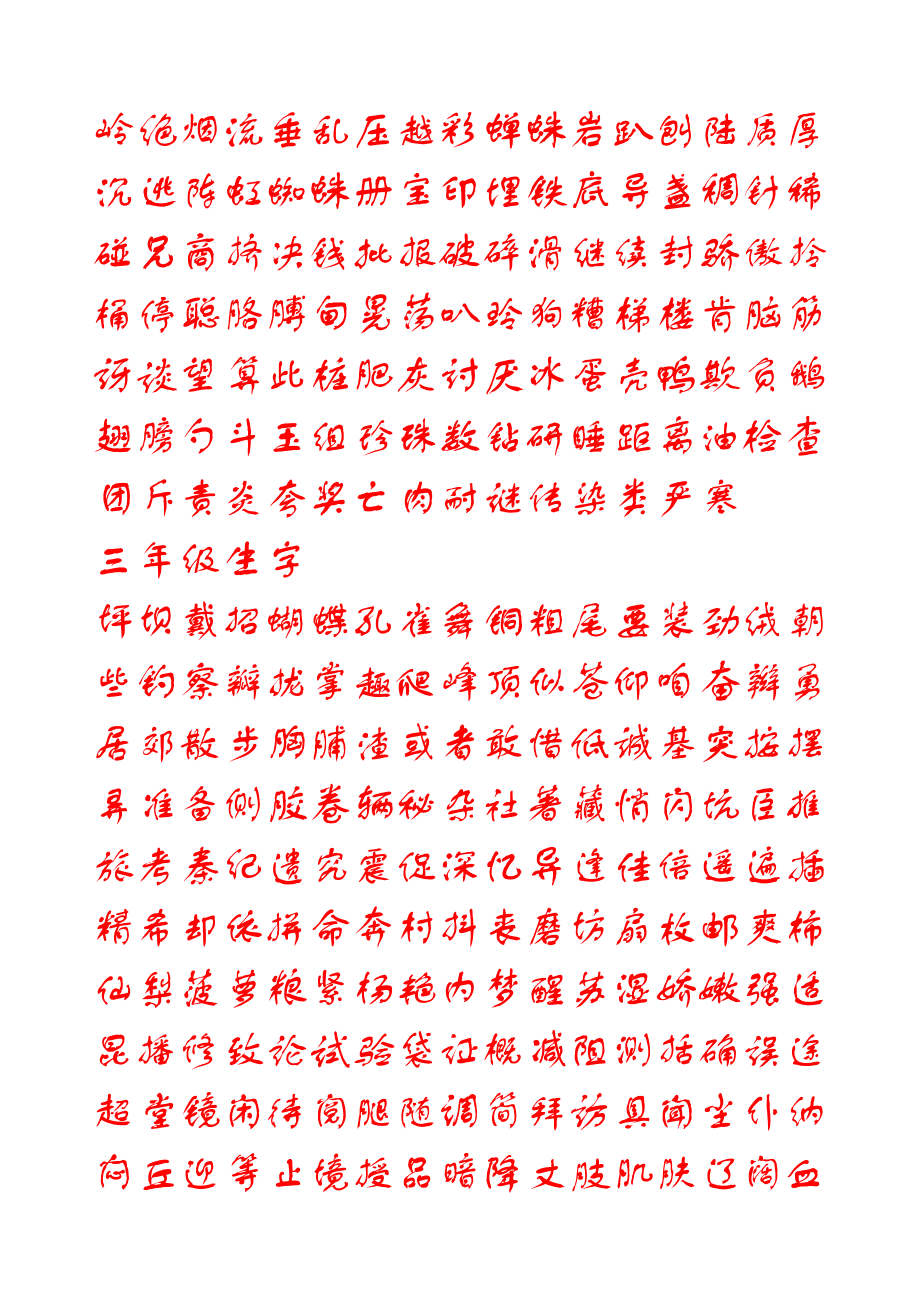 岭绝烟流垂乱压越彩蝉蛛岩趴刨陆质厚
沉逃阵虹蜘蛛册宝印埋铁底导盏稠针稀
碰兄商挤决钱批报破碎滑继续封骄傲拎
桶停聪胳膊甸晃荡叭玲狗糟梯楼肯脑筋
讶谈望算此桩肥灰讨厌冰蛋壳鸭欺负鹅
翅膀勺斗玉组珍珠数钻研睡距离油检查
团斥责炎夸奖亡肉耐谜传染类严寒
三年级生字
坪坝戴招蝴蝶孔雀舞铜粗尾要装劲绒朝
些钓察瓣拢掌趣爬峰顶似苍仰咱奋辫勇
居郊散步胸脯渣或者敢惜低诚基突按摆
弄准备侧胶卷辆秘杂社著藏悄闪坑臣推
旅考秦纪遗究震促深忆异逢佳倍遥遍插
精希却依拼命奔村抖丧磨坊扇枚邮爽柿
仙梨菠萝粮紧杨艳内梦醒苏湿娇嫩强适
昆播修致论试验袋证概减阻测括确误途
超堂镜闲待阅腿随调简拜访具闻尘仆纳
闷丘迎等止境授品暗降丈肢肌肤辽阔血